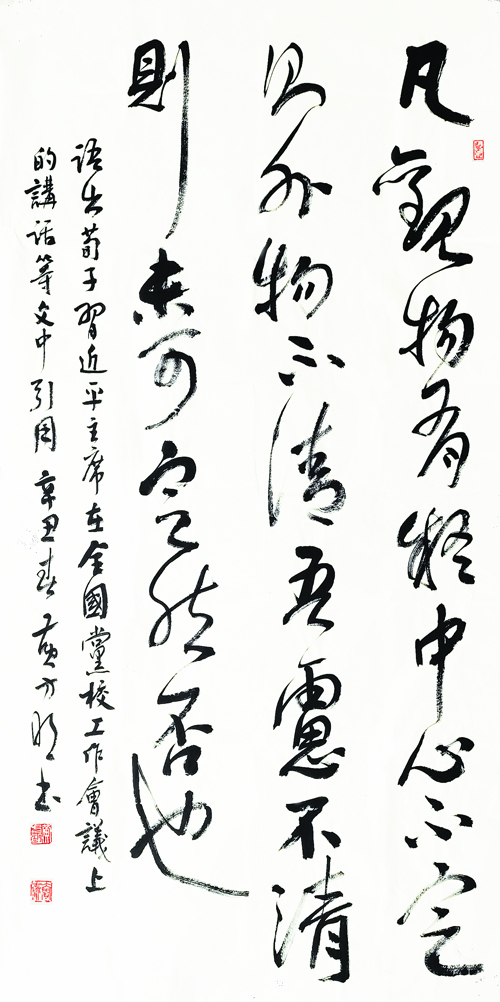 凡觀物有疑中心不定
则外物不清吾慮不清
則未可定然否也
語出荀子習近平主席在全國黨校工作會議上
的講話等文中引用 辛丑春 書